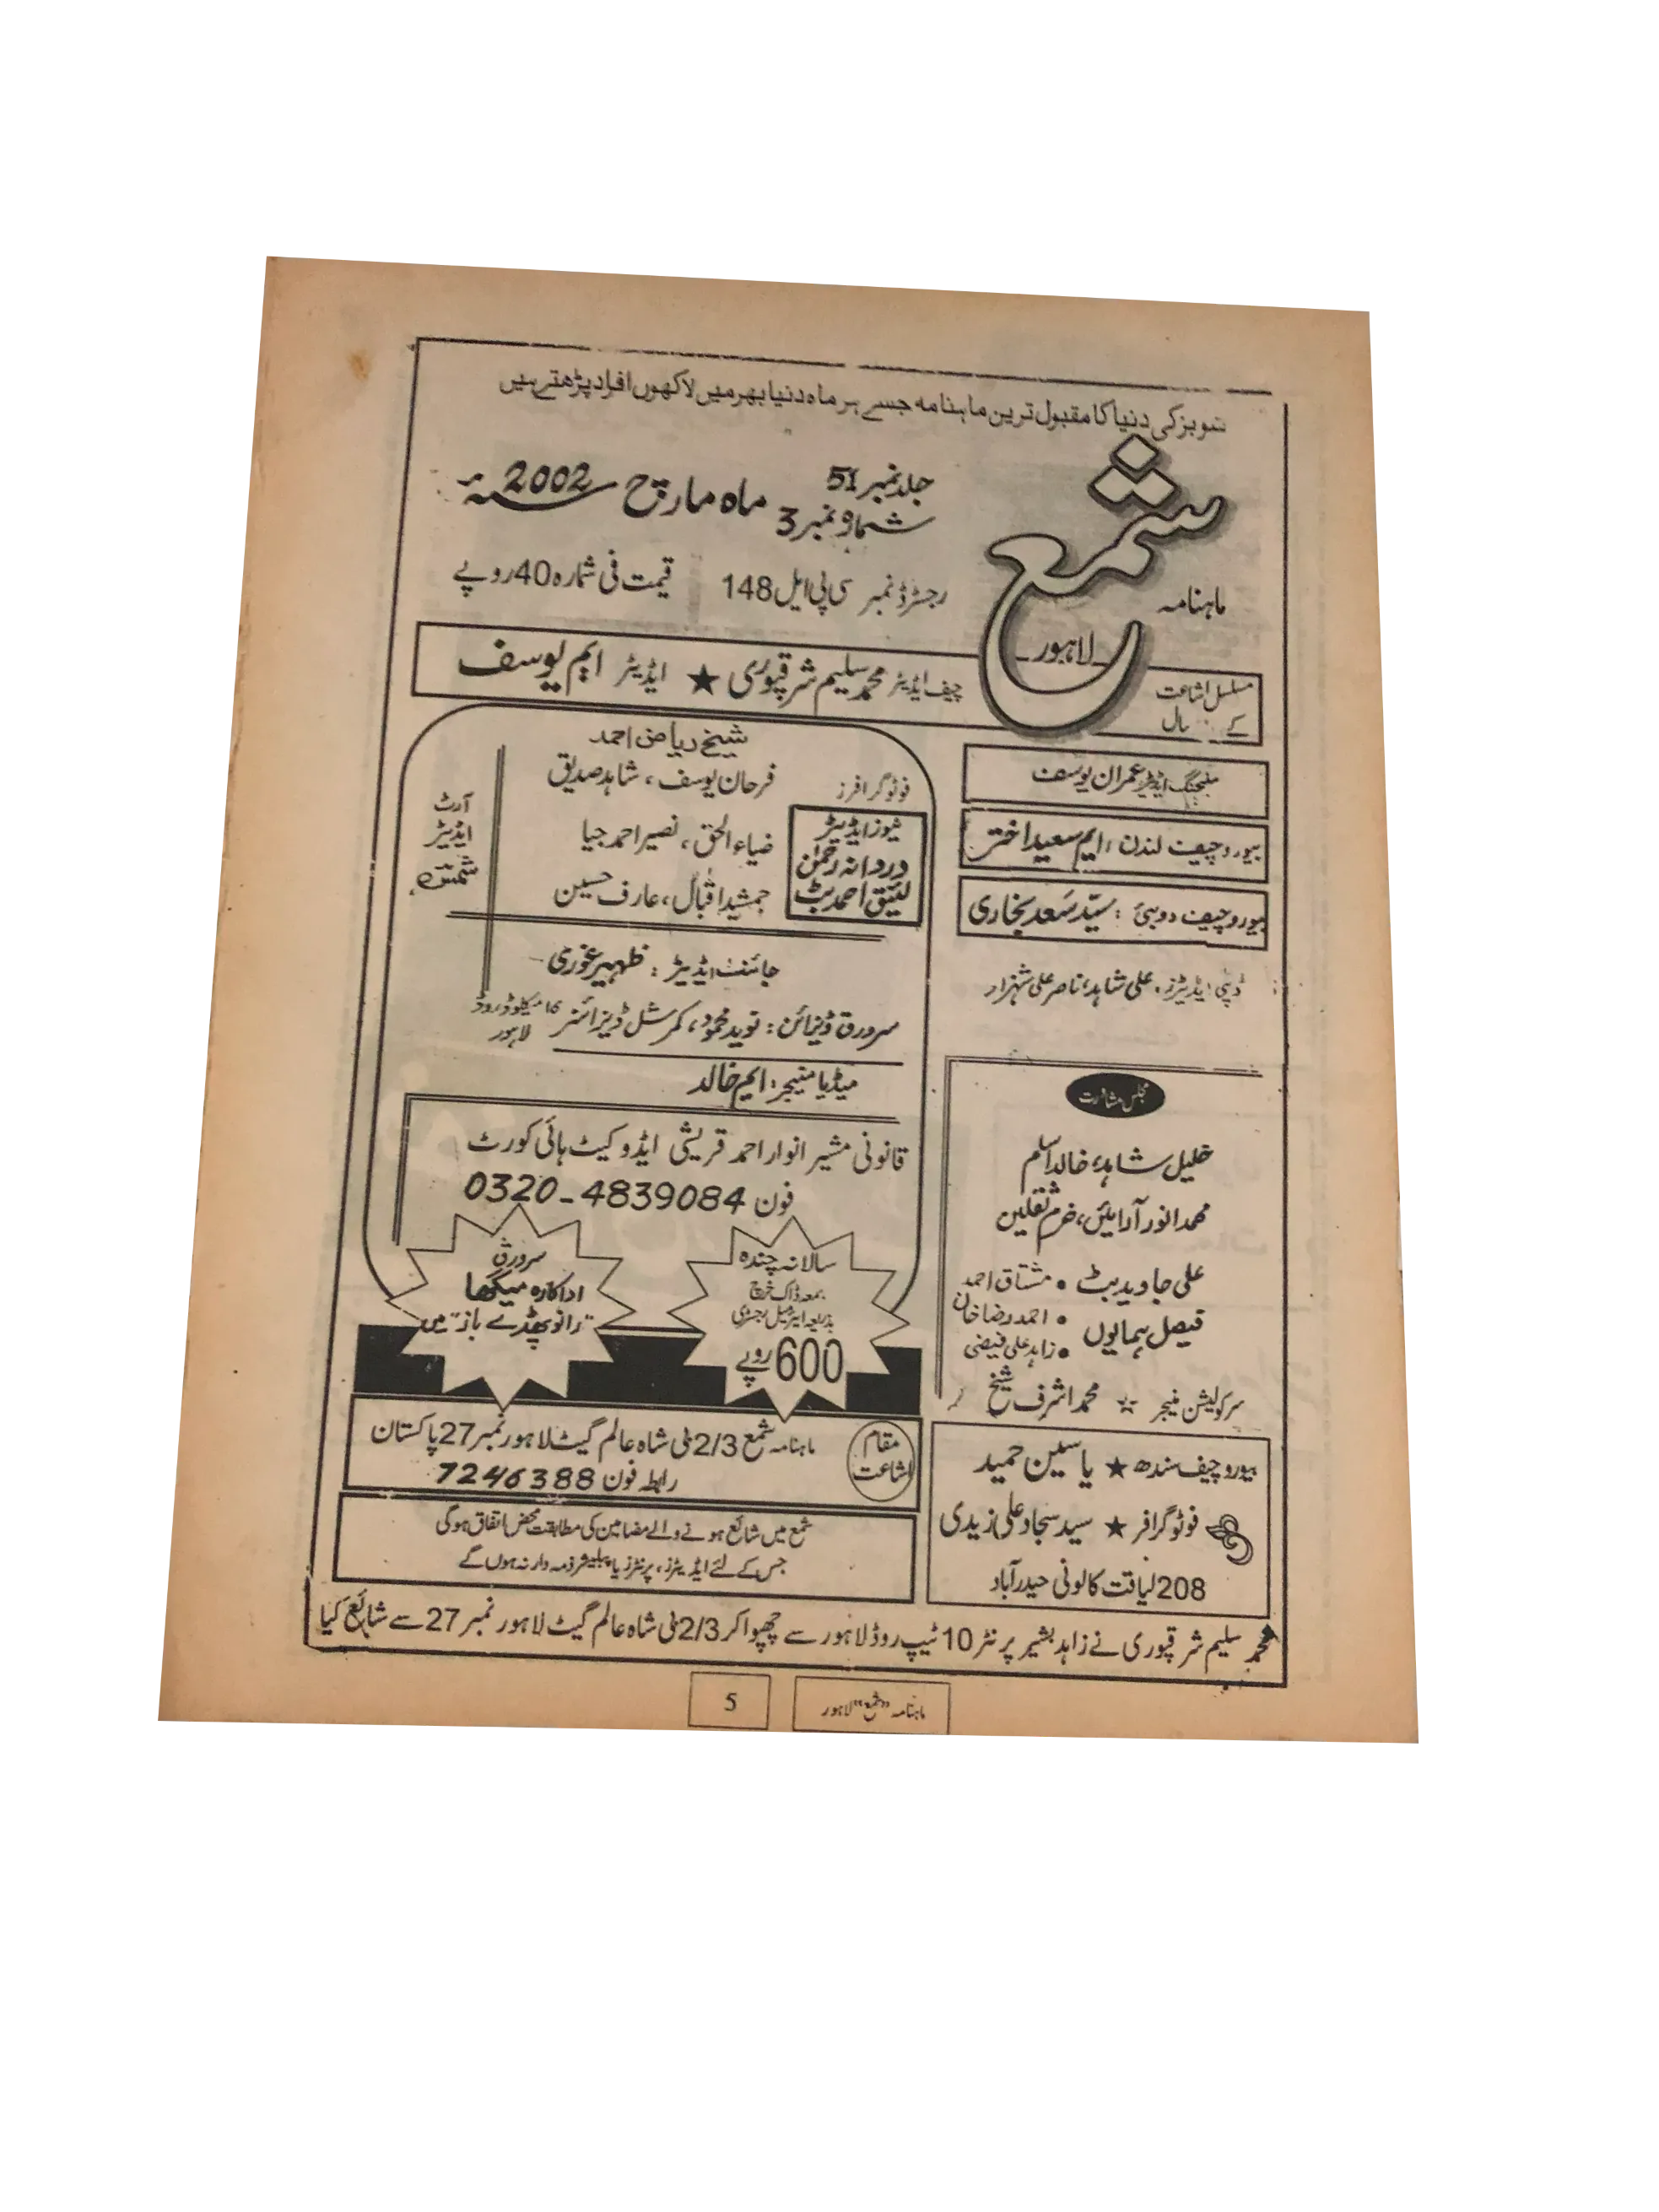 شوبز کی دنیا کا مقبول ترین ماہنامہ جسے ہر ماہ دنیا بھر میں لاکھوں افراد پڑھتے ہیں
ماہنامہ
شمع
لاہور
جلد نمبر 51
شمارہ نمبر 3
ماہ مارچ 2002ء
رجسٹرڈ نمبر سی پی ایل 148
قیمت فی شمارہ 40 روپے
مسلسل اشاعت
کے سال
چیف ایڈیٹر محمد سلیم شرقپوری ★ ایڈیٹر ایم یوسف
منیجنگ ایڈیٹر عمران یوسف
بیورو چیف لندن : ایم سعید اختر
بیورو چیف دوبئ : سیّد سَعد بخاری
ڈپٹی ایڈیٹرز، علی شاہد، ناصر علی شہزاد
مجلس مشاورت
خلیل شاہد، خالد اسلم
محمد انور آرائیں، خرم ثقلین
علی جاوید بٹ • مشتاق احمد
فیصل ہمایوں • احمد رضا خان
• زاہد علی فیضی
سرکولیشن منیجر ☆ محمد اشرف شیخ
بیورو چیف سندھ ★ یاسین حمید
فوٹوگرافر ★ سید سجاد علی زیدی
208 لیاقت کالونی حیدرآباد
شیخ ریاض احمد
فوٹوگرافرز
فرحان یوسف، شاہد صدیق
ضیاء الحق، نصیر احمد جیا
جمشید اقبال، عارف حسین
نیوز ایڈیٹر
دردانہ رحمٰن
لئیق احمد بٹ
آرٹ
ایڈیٹر
شمسی
جائنٹ ایڈیٹر : ظہیر غوری
سرورق ڈیزائن : نوید محمود، کمرشل ڈیزائنر 16 میکلوڈ روڈ لاہور
میڈیا منیجر : ایم خالد
قانونی مشیر انوار احمد قریشی ایڈوکیٹ ہائی کورٹ
فون 0320-4839084
سالانہ چندہ
بمعہ ڈاک خرچ
بذریعہ ایئرمیل رجسٹری
600 روپے
سرورق
اداکارہ میگھا
"رانو پھڈے باز" میں
مقام
اشاعت
ماہنامہ شمع 2/3 ٹی شاہ عالم گیٹ لاہور نمبر 27 پاکستان
رابطہ فون 7246388
شمع میں شائع ہونے والے مضامین کی مطابقت محض اتفاق ہوگی
جس کے لئے ایڈیٹرز، پرنٹرز یا پبلیشر ذمہ دار نہ ہوں گے
محمد سلیم شرقپوری نے زاہد بشیر پرنٹر 10 ٹیپ روڈ لاہور سے چھپوا کر 2/3 ٹی شاہ عالم گیٹ لاہور نمبر 27 سے شائع کیا
ماہنامہ "شمع" لاہور
5